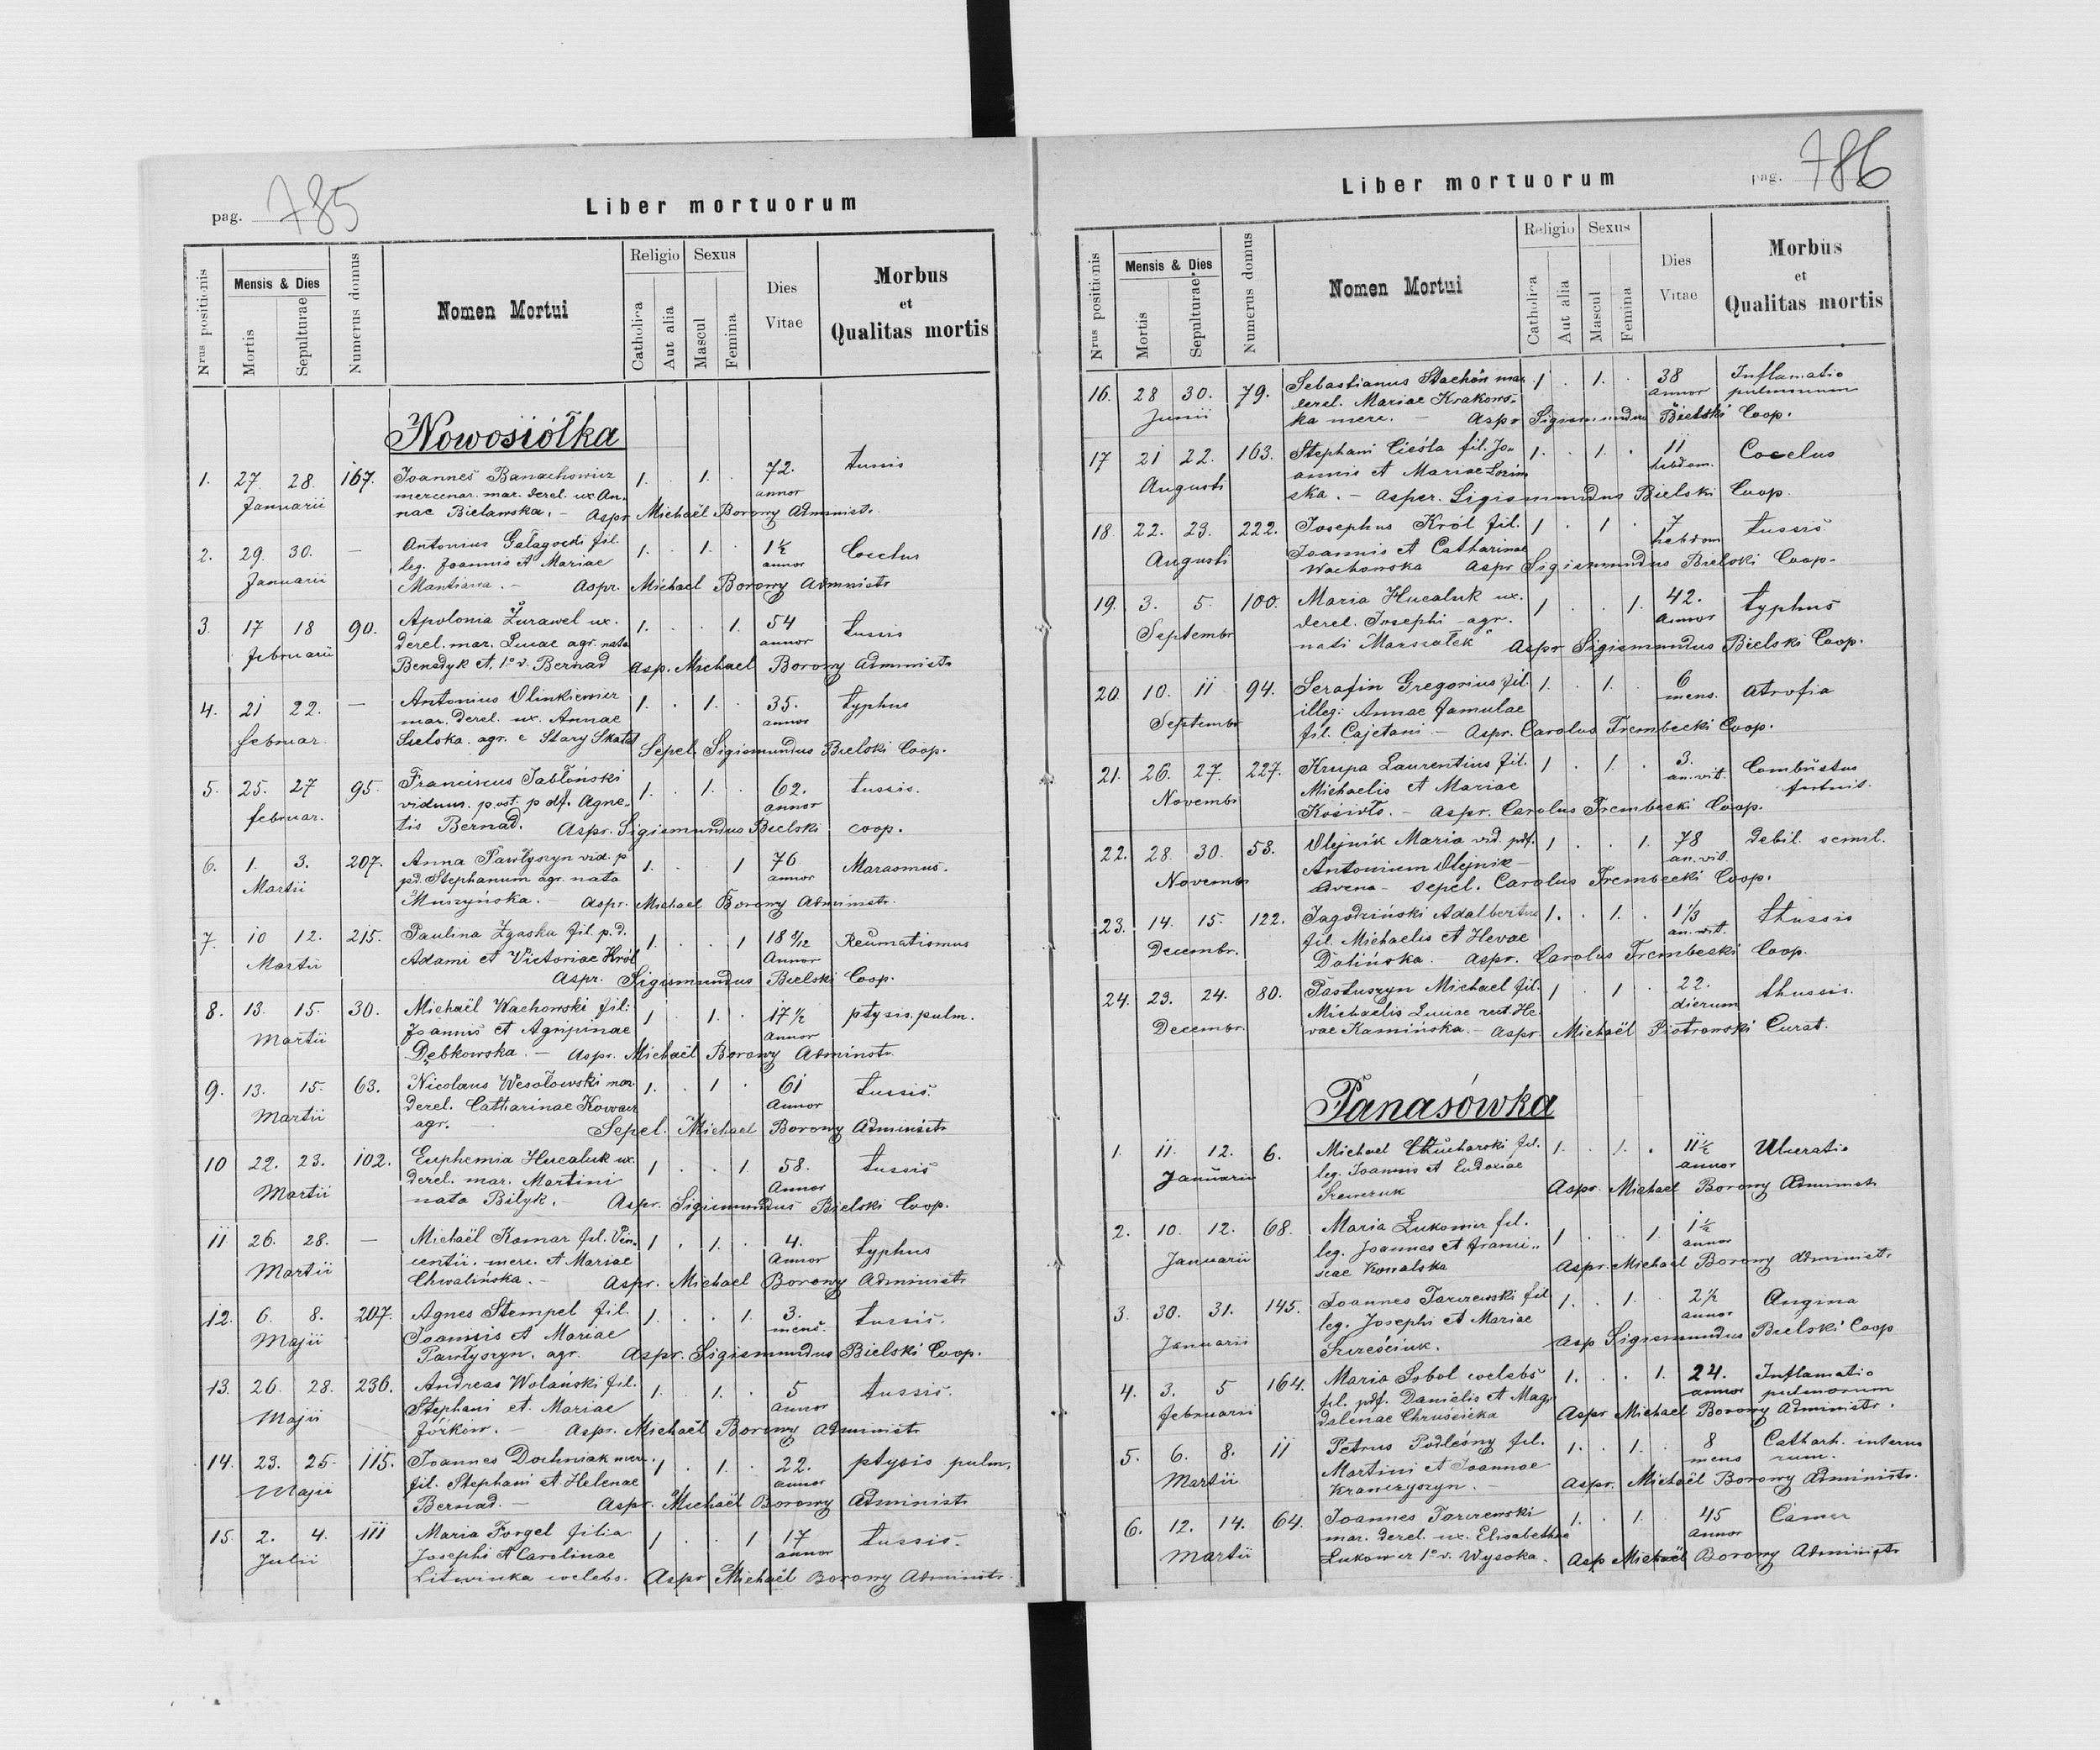 pag. 785
Liber mortuorum
Nrus positionis
Mensis & Dies
Mortis
Sepulturae
Numerus domus
Nomen Mortui
Religio
Catholica
Aut alia
Sexus
Mascul
Femina
Dies Vitae
Morbus et Qualitas mortis
Nowosiółka
1. 27 28. 167. Joannes Banachowicz 1. . 1. . 72. tussis
Januarii mercenar. mar. derel. ux An= annor
nae Bielawska. – Aspr. Michaël Borowy Administr.
2. 29. 30. — Antonius Gałagocki fil. 1. . 1. . 1½ Coectus
Januarii leg. Joannis et Mariae annor
Aspr. Michael Borowy Administr
3. 17 18 90. Apolonia Żurawel ux. 1. . . 1. 54 tussis
februarii derel. mar. Lucae agr. nata annor
Benedyk et, 1º v. Bernad Asp. Michael Borowy Administr
4. 21 22. — Antonius Olinkiewicz 1. . 1. . 35. typhus
februar. mar. derel. ux. Annae annor
Sielska. agr. e Stary Skałat Sepel. Sigismundus Bielski Coop.
5. 25. 27 95. Franciscus Jabłoński 1. . 1. . 62. tussis.
februar. viduus. post. p df. Agne= annor
tis Bernad. Aspr. Sigismundus Bielski coop.
6. 1. 3. 207. Anna Pawłyszyn vid. p 1. . . 1 76 Marasmus.
Martii pd. Stephanum agr. nata annor
Muszyńska. – Aspr. Michael Borowy Administr.
7. 10 12. 215. Paulina Zgaska fil. p. d. 1. . . 1 18 Reumatismus
Martii Adami et Victoriae Król Annor
Aspr. Sigismundus Bielski Coop.
8. 13. 15. 30. Michaël Wachowski fil: 1 . 1. . 17½ ptysis. pulm.
Martii Joannis et Agripinae Annor
Dębkowska. – Aspr. Michaël Borowy Administr.
9. 13. 15. 63. Nicolaus Wesołowski mar. 1. . 1 . 61 tussis.
Martii derel. Catharinae Kowacz Annor
agr. – Sepel. Michael Borowy Administr
10 22. 23. 102. Euphemia Hucaluk ux. 1 . . 1. 58. tussis
Martii derel. mar. Martini Annor
nata Bilyk. – Aspr. Sigismundus Bielski Coop.
11 26. 28. — Michaël Komar fil. Vin= 1 . 1. . 4. typhus
Martii centii. merc. et Mariae Annor
Chwalińska. – Aspr. Michael Borowy Administr
12. 6. 8. 207. Agnes Stempel fil. 1. . . 1. 3. tussis.
Majii Joannis et Mariae mens.
Pawłyszyn. agr. Aspr. Sigismundus Bielski Coop.
13. 26. 28. 236. Andreas Wolański fil. 1. . 1. . 5 tussis.
Majii Stephani et. Mariae annor
Jórków. – Aspr. Michaël Borowy Administr
14. 23. 25. 115. Joannes Dochniak merc. 1 . 1. . 22. ptysis pulm.
Majii fil. Stephani et Helenae annor
Bernad. – Aspr. Michaël Borowy Administr
15. 2. 4. 111 Maria Forgel filia 1 . . 1 17 tussis.
Julii Josephi et Carolinae annor
Litwinka coelebs. Aspr Michaël Borowy Administr.
pag. 786
Liber mortuorum
Nrus positionis
Mensis & Dies
Mortis
Sepulturae
Numerus domus
Nomen Mortui
Religio
Catholica
Aut alia
Sexus
Mascul
Femina
Dies Vitae
Morbus et Qualitas mortis
16. 28 30. 79. Sebastianus Stachón mar. 1 . 1. . 38 Inflamatio
Junii derel. Mariae Krakows= annor pulmonum
ka merc. – Aspr Sigismundus Bielski Coop.
17 21 22. 163. Stephani Cieśla fil. Jo= 1. . 1. . 11 Coectus
Augusti annis et Mariae Lozin hebdom.
ska. – Aspr. Sigismundus Bielski Coop.
18 22. 23. 222. Josephus Król fil. 1 . 1 . 7 tussis
Augusti Joannis et Catharinae hebdom
Wachowska Aspr Sigismundus Bielski Coop.
19. 3. 5. 100. Maria Hucaluk ux. 1 . . 1. 42. typhus
Septembr derel. Josephi agr. Annor
nati Marszałek Aspr Sigismundus Bielski Coop.
20 10. 11 94. Serafin Gregorius fil. 1. . 1. . 6 atrofia
Septembr illeg: Annae famulae mens.
fil. Cajetani – Aspr. Carolus Trembecki Coop.
21. 26. 27. 227. Krupa Laurentius fil. 1 . 1. . 3. Combustus
Novembr Michaelis et Mariae an. vit.
Kósidło. – Aspr. Carolus Trembecki Coop.
22. 28. 30. 53. Olejnik Maria vid. pdf. 1 . . 1. 78 debil. semil.
Novembr Antonium Olejnik – an. vit.
advena – Sepel. Carolus Trembecki Coop.
23. 14. 15. 122. Jagodziński Adalbertus 1. . 1. . 1⅓ thussis
Decembr. fil. Michaelis et Hevae an. vit.
Dolińska. – Aspr. Carolus Trembecki Coop.
24. 23. 24. 80. Pastuszyn Michael fil. 1 . 1 . 22. thussis.
Decembr. Michaelis Lucae rect. He= dierum
vae Kamińska. – Aspr. Michaël Piotrowski Curat.
Panasówka
1. 11. 12. 6. Michael Chucharski fil. 1. . 1. . 11½ Ulceratio
Januarii leg. Joannis et Eudoxiae annor
Szewczuk Aspr. Michael Borowy Administr
2. 10. 12. 68. Maria Łukowicz fil. 1 . . 1. 1½
Januarii leg. Joannes et franci= annor
scae Kowalska Aspr. Michaël Borowy Administr.
3. 30. 31. 145. Joannes Tarczewski fil 1. . 1. . 2½ Angina
Januarii leg. Josephi et Mariae annor
Asp Sigismundus Bielski Coop
4. 3. 5 164. Maria Sobol coelebs 1. . . 1. 24. Inflamatio
februarii fil. pdf. Danielis et Mag= annor pulmonum
dalenae Chruścicka Aspr Michael Borowy Administr.
5. 6. 8. 11 Petrus Podleśny fil. 1. . 1. . 8 Catharh. interno
Martii Martini et Joannae mens rum.
Krawczyszyn. – Aspr. Michaël Borowy Administr.
6. 12. 14. 64. Joannes Tarczewski 1. . 1. . 45 Cancer
Martii mar. derel. ux. Elisabethae annor
Łukowicz 1º v. Wysoka. Asp Michaël Borowy Administr